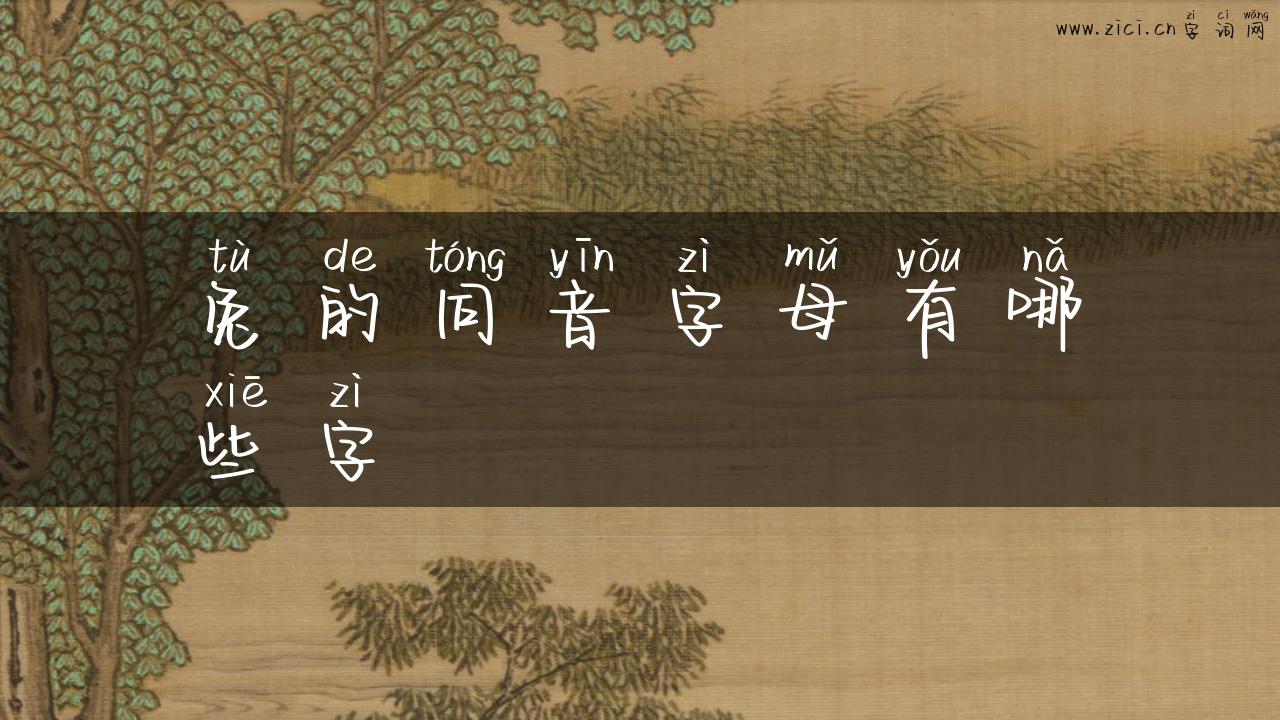 zì cí wǎng
www.zici.cn字词网
tù de tóng yīn zì mǔ yǒu nǎ
兔的同音字母有哪
xiē zì
些字